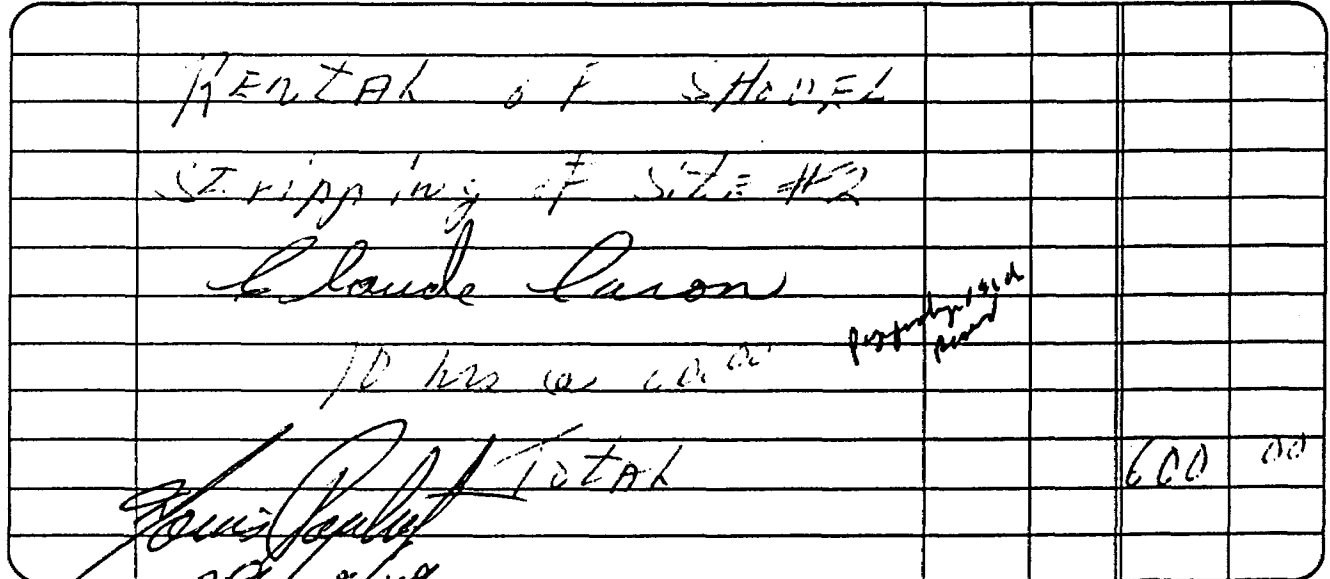 RENTAL OF SHOVEL
Stripping of Site #2
Claude Caron
10 hrs @ 60.00
TOTAL 600 00
Louis